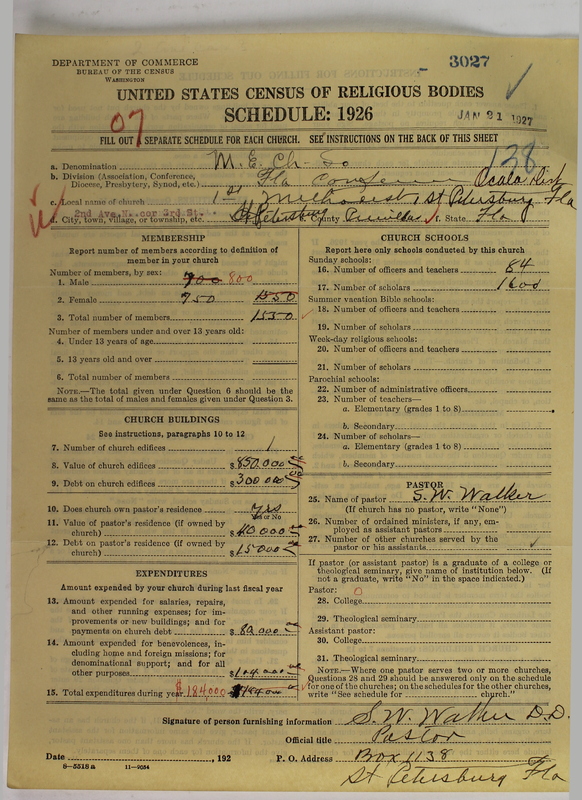 DEPARTMENT OF COMMERCE
BUREAU OF THE CENSUS
WASHINGTON
3027
UNITED STATES CENSUS OF RELIGIOUS BODIES
SCHEDULE: 1926
JAN 31 1927
07
FILL OUT A SEPARATE SCHEDULE FOR EACH CHURCH. SEE INSTRUCTIONS ON THE BACK OF THIS SHEET
138
a. Denomination M. E. Ch. So
b. Division (Association, Conference, Diocese, Presbytery, Synod, etc.) Fla Conference Ocala Dist
c. Local name of church 1st Methodist St Petersburg Fla
2nd Ave. N. cor 3rd St.
d. City, town, village, or township, etc. St Petersburg e. County Pinellas f. State Fla
MEMBERSHIP
Report number of members according to definition of member in your church
Number of members, by sex:
1. Male 700 800
2. Female 750 1550
3. Total number of members 1550
Number of members under and over 13 years old:
4. Under 13 years of age
5. 13 years old and over
6. Total number of members
NOTE.—The total given under Question 6 should be the same as the total of males and females given under Question 3.
CHURCH BUILDINGS
See instructions, paragraphs 10 to 12
7. Number of church edifices 1
8. Value of church edifices $ 850.000
9. Debt on church edifices $ 300000
10. Does church own pastor's residence yes
Yes or No
11. Value of pastor's residence (if owned by church) $ 40.000
12. Debt on pastor's residence (if owned by church) $ 15000
EXPENDITURES
Amount expended by your church during last fiscal year
13. Amount expended for salaries, repairs, and other running expenses; for improvements or new buildings; and for payments on church debt $ 80.000
14. Amount expended for benevolences, including home and foreign missions; for denominational support; and for all other purposes $ 104.000
15. Total expenditures during year $184,000
CHURCH SCHOOLS
Report here only schools conducted by this church
Sunday schools:
16. Number of officers and teachers 84
17. Number of scholars 1600
Summer vacation Bible schools:
18. Number of officers and teachers
19. Number of scholars
Week-day religious schools:
20. Number of officers and teachers
21. Number of scholars
Parochial schools:
22. Number of administrative officers
23. Number of teachers—
a. Elementary (grades 1 to 8)
b. Secondary
24. Number of scholars—
a. Elementary (grades 1 to 8)
b. Secondary
PASTOR
25. Name of pastor S. W. Walker
(If church has no pastor, write "None")
26. Number of ordained ministers, if any, employed as assistant pastors
27. Number of other churches served by the pastor or his assistants
If pastor (or assistant pastor) is a graduate of a college or theological seminary, give name of institution below. (If not a graduate, write "No" in the space indicated.)
Pastor:
28. College
29. Theological seminary
Assistant pastor:
30. College
31. Theological seminary
NOTE.—Where one pastor serves two or more churches, Questions 28 and 29 should be answered only on the schedule for one of the churches; on the schedules for the other churches, write "See schedule for church."
Signature of person furnishing information S. W. Walker D.D.
Official title Pastor
Date , 192 P. O. Address Box 1138
St Petersburg Fla
8—5518a 11—9654